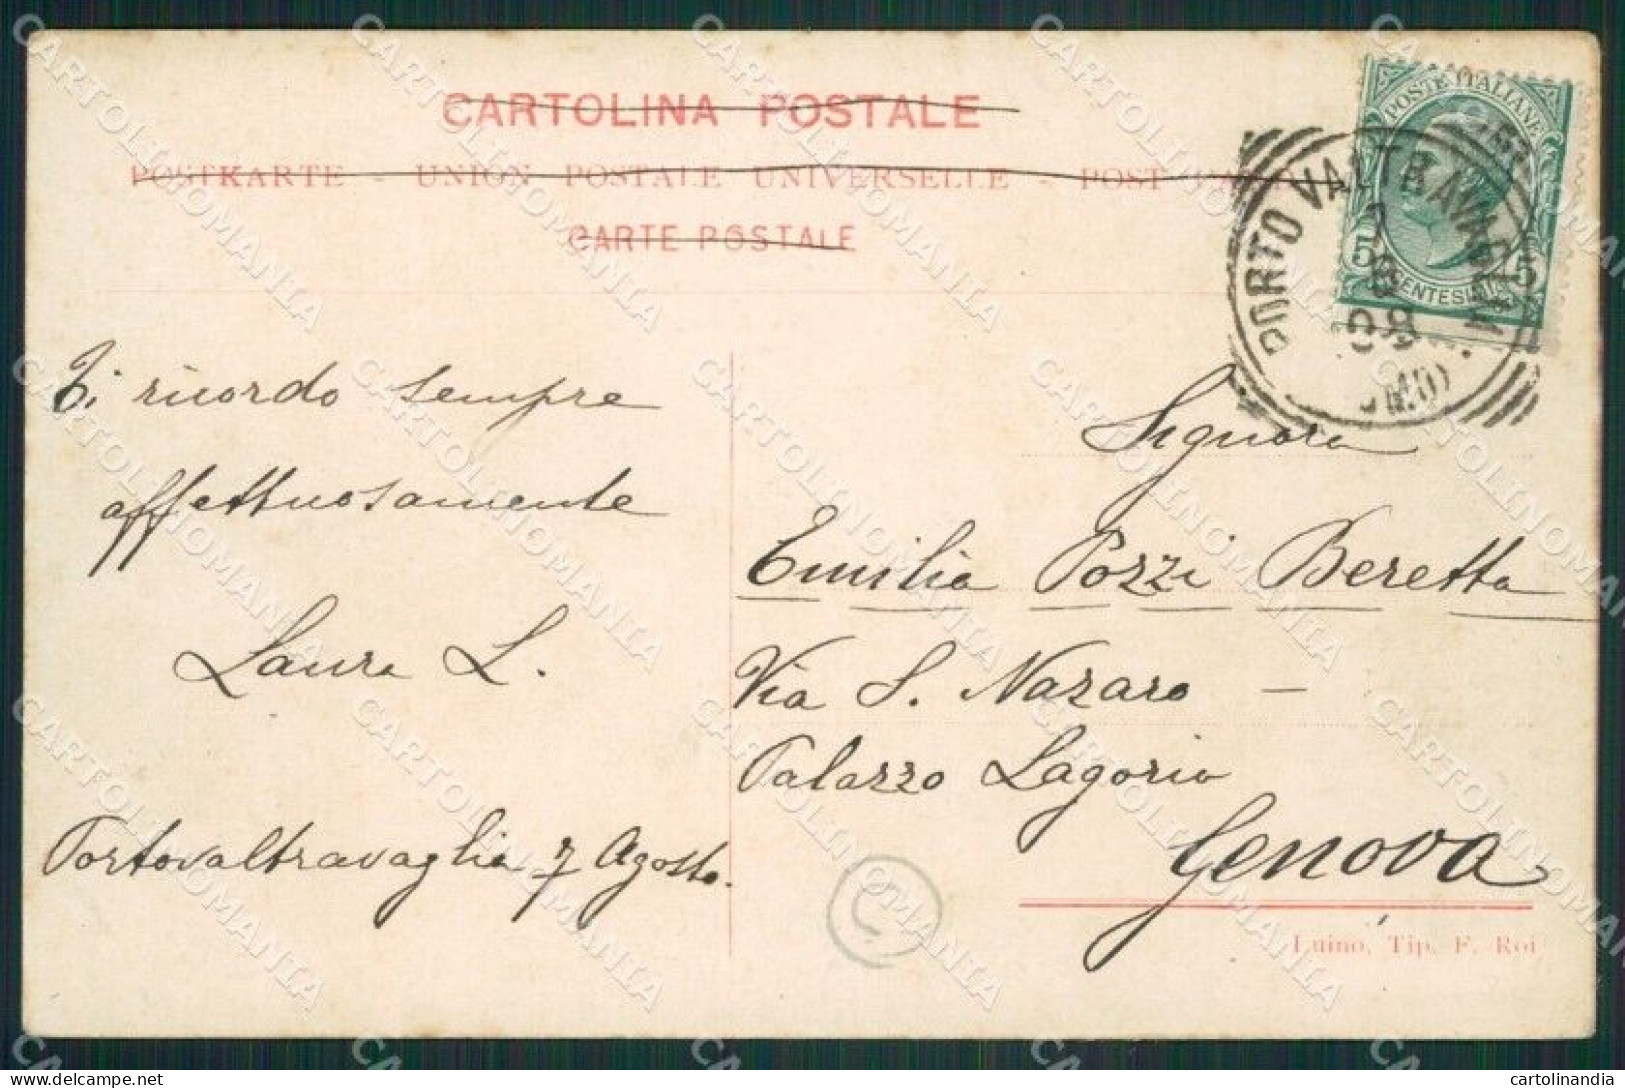 CARTOLINA POSTALE
POSTKARTE - UNION POSTALE UNIVERSELLE - POST
CARTE POSTALE
POSTE ITALIANE
5 5
CENTESIMI
PORTO VALTRAVAGLIA
7
8
08
Ti ricordo sempre
affettuosamente
Laura L.
Portovaltravaglia 7 Agosto.
Signora
Emilia Pozzi Beretta
Via S. Nazaro -
Palazzo Lagorio
Genova
Luino, Tip. F. Roi
C
CARTOLINOMANIA
cartolinandia